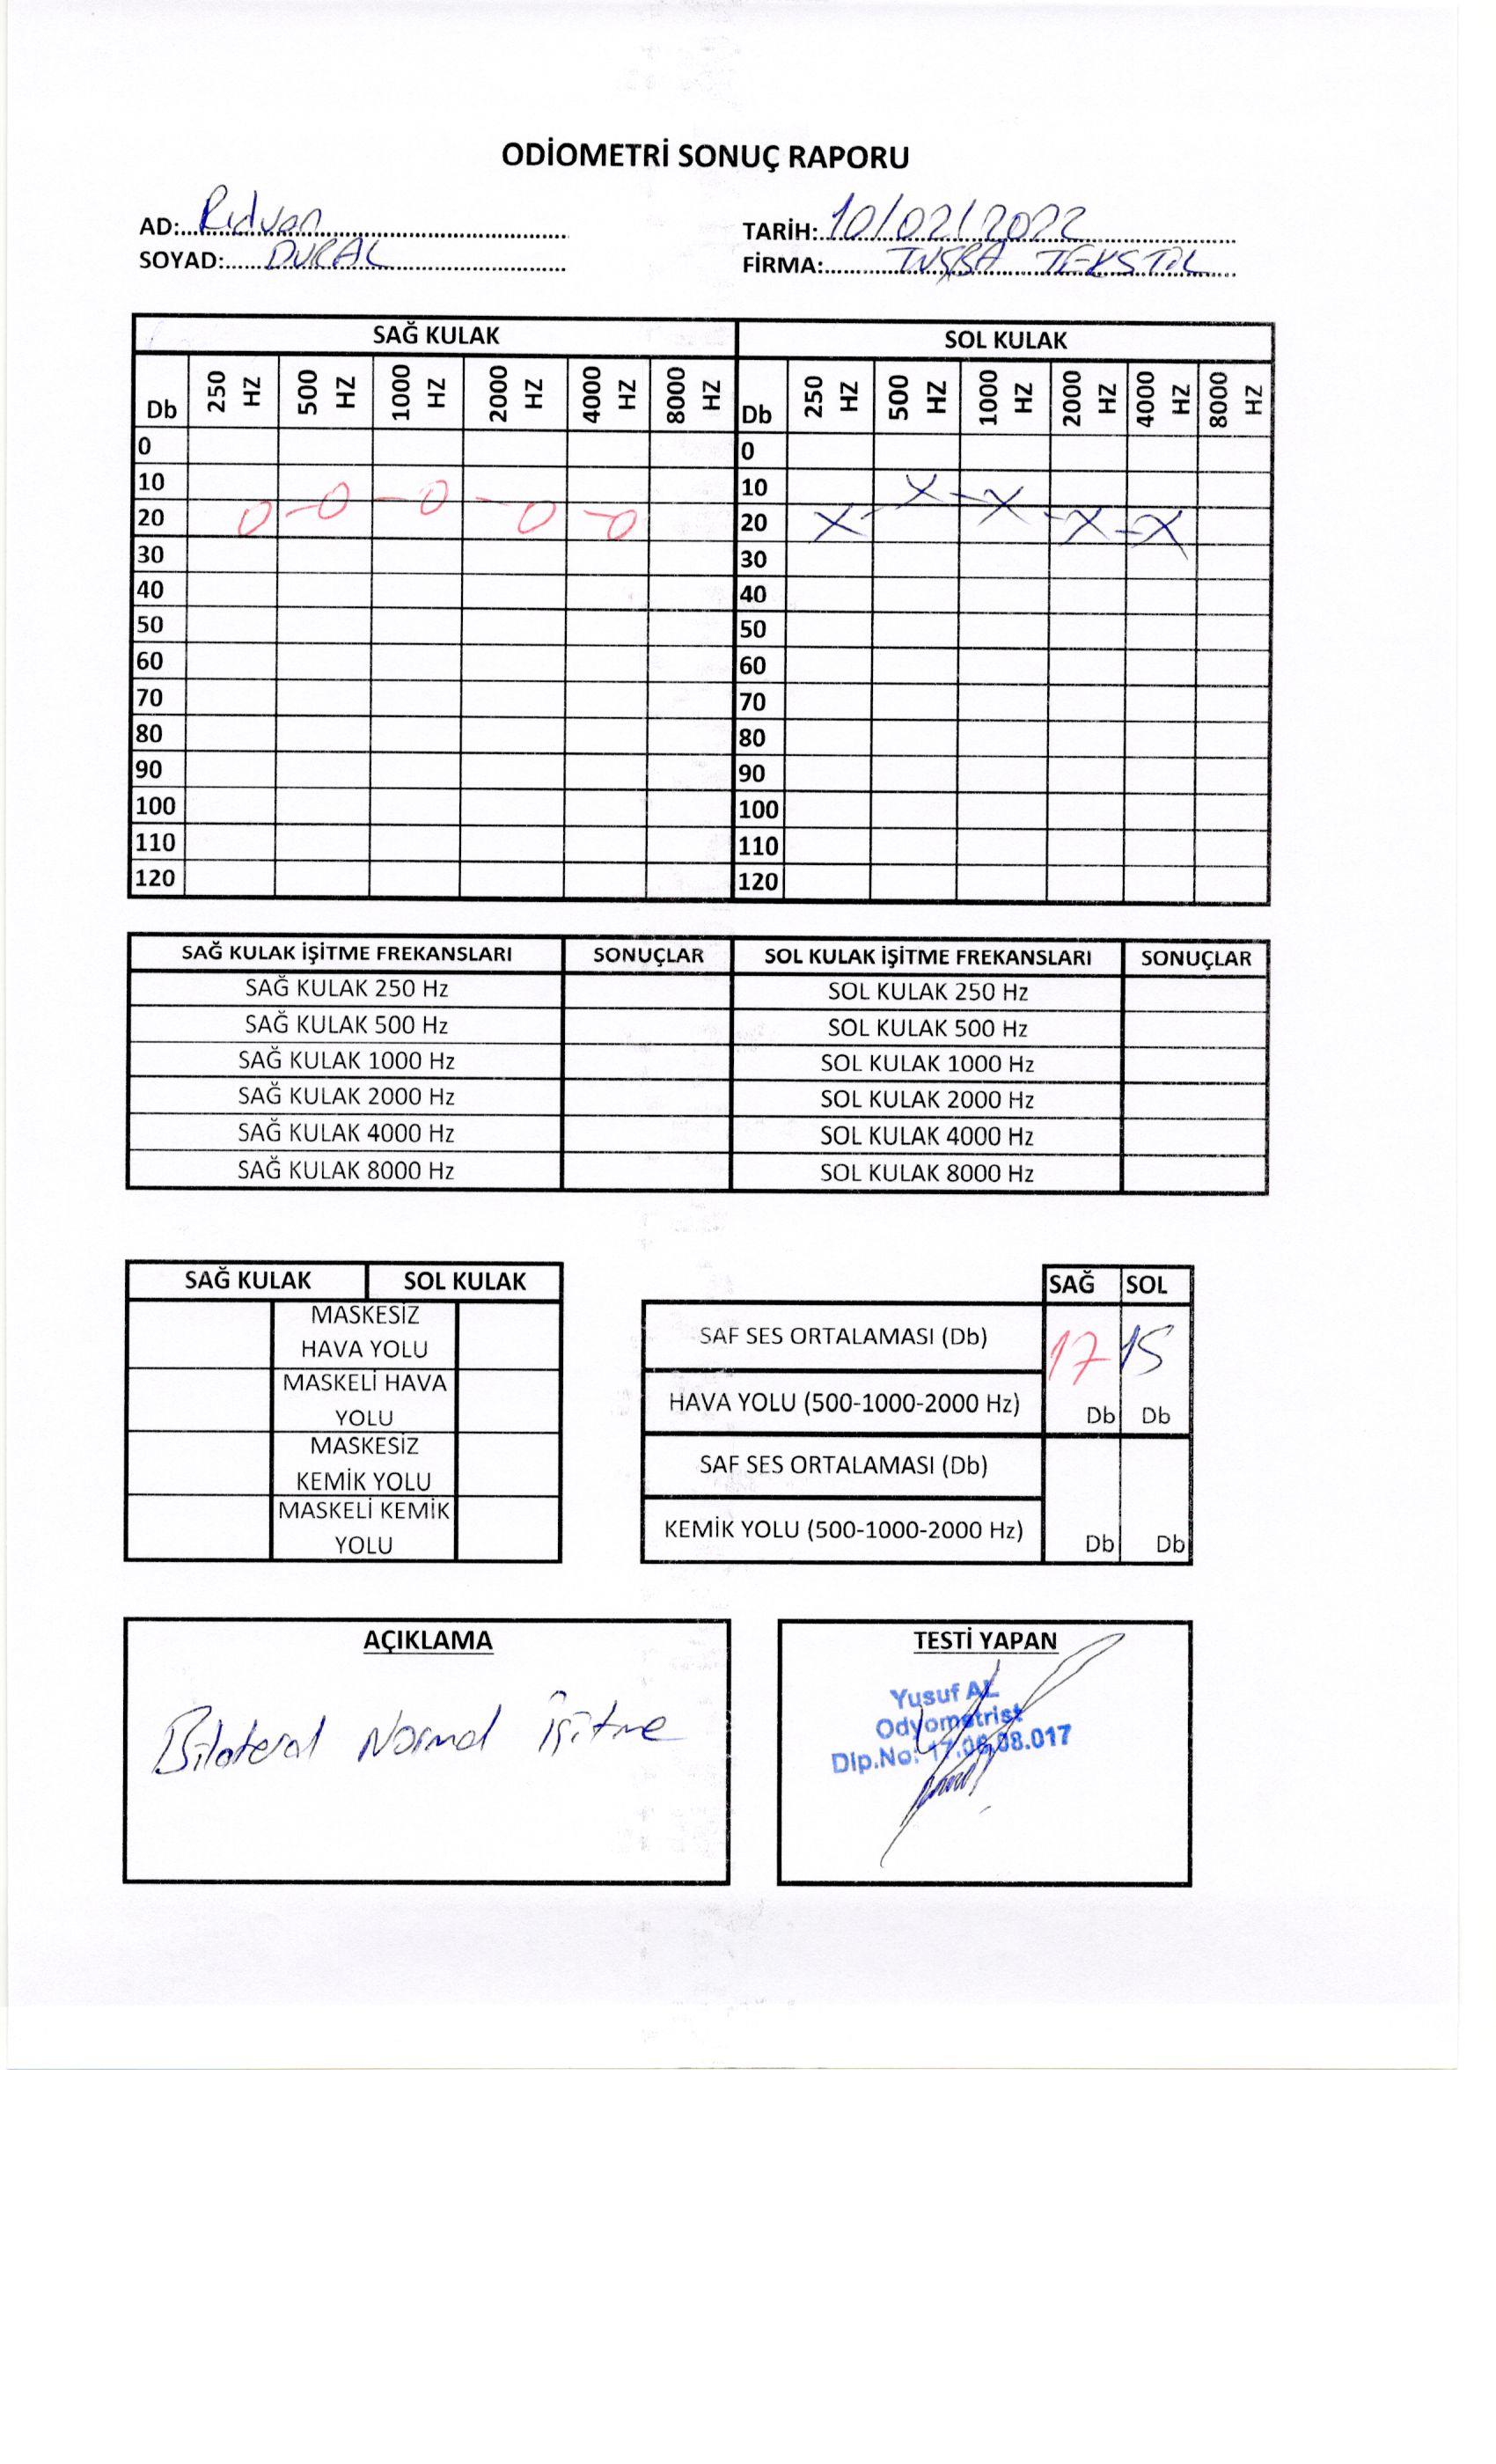 ODİOMETRİ SONUÇ RAPORU
AD:.. Rıdvan
TARİH:. 10/02/2022
SOYAD:..... DURAL
FİRMA:....... TUĞBA TEKSTİL
SAĞ KULAK SOL KULAK
Db 250 HZ 500 HZ 1000 HZ 2000 HZ 4000 HZ 8000 HZ Db 250 HZ 500 HZ 1000 HZ 2000 HZ 4000 HZ 8000 HZ
0 0
10 10
20 20
30 30
40 40
50 50
60 60
70 70
80 80
90 90
100 100
110 110
120 120
SAĞ KULAK İŞİTME FREKANSLARI SONUÇLAR SOL KULAK İŞİTME FREKANSLARI SONUÇLAR
SAĞ KULAK 250 Hz SOL KULAK 250 Hz
SAĞ KULAK 500 Hz SOL KULAK 500 Hz
SAĞ KULAK 1000 Hz SOL KULAK 1000 Hz
SAĞ KULAK 2000 Hz SOL KULAK 2000 Hz
SAĞ KULAK 4000 Hz SOL KULAK 4000 Hz
SAĞ KULAK 8000 Hz SOL KULAK 8000 Hz
SAĞ KULAK SOL KULAK
MASKESİZ
HAVA YOLU
MASKELİ HAVA
YOLU
MASKESİZ
KEMİK YOLU
MASKELİ KEMİK
YOLU
SAĞ SOL
SAF SES ORTALAMASI (Db) 17 15
HAVA YOLU (500-1000-2000 Hz) Db Db
SAF SES ORTALAMASI (Db)
KEMİK YOLU (500-1000-2000 Hz) Db Db
AÇIKLAMA
Bilateral Normal İşitme
TESTİ YAPAN
Yusuf AL
Odyometrist
Dip.No: 17.06.08.017